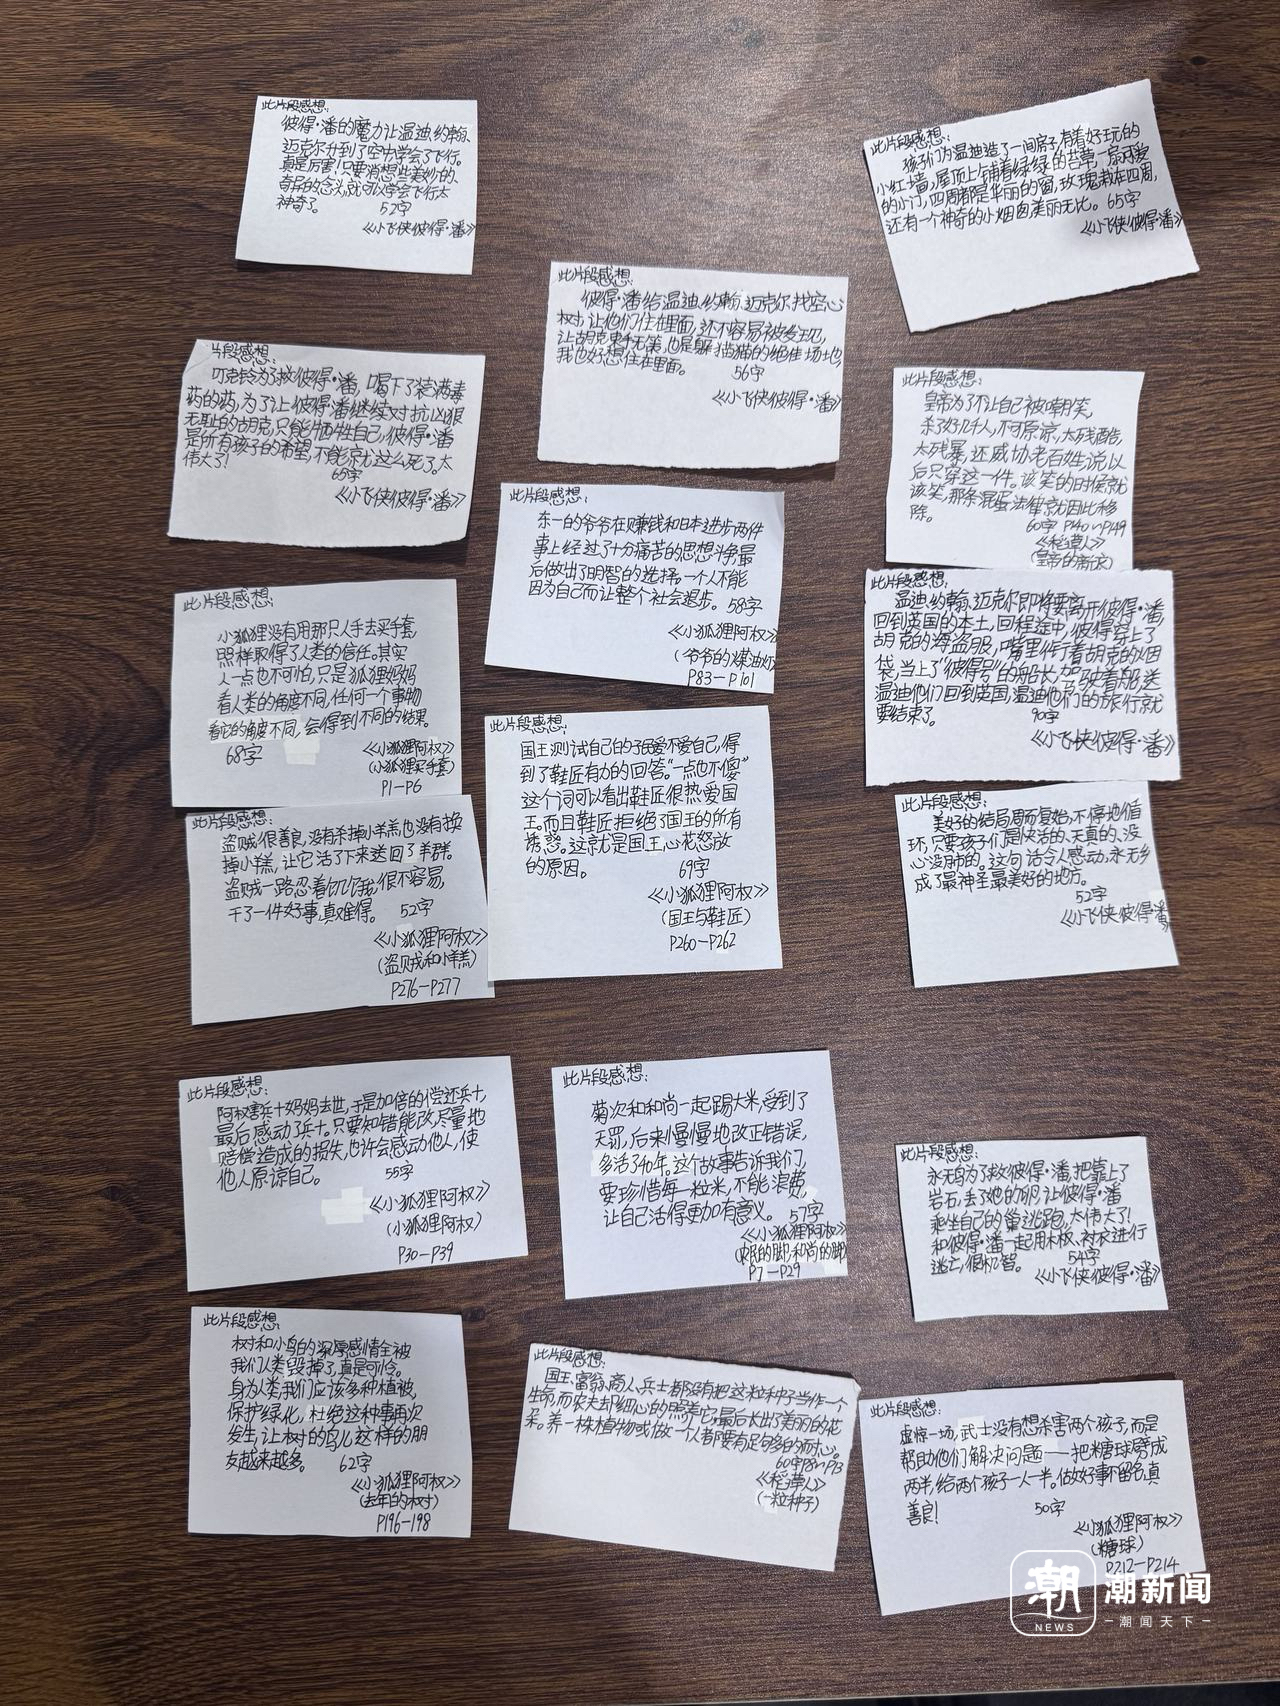 此片段感想:
彼得·潘的魔力让温迪、约翰、
迈克尔升到了空中学会了飞行。
真是厉害!只要肖想些美妙的、
奇异的念头,就可以学会飞行太
神奇了。
52字
《小飞侠彼得·潘》
此片段感想:
孩子们为温迪造了一间房子,有着好玩的
小红墙,屋顶上铺着绿绿的苔草,一扇可爱
的小门,四周都是华丽的窗,玫瑰栽在四周,
还有一个神奇的小烟囱,美丽无比。65字
《小飞侠彼得·潘》
此片段感想:
彼得·潘给温迪、约翰、迈克尔找空心
树,让他们住在里面,还不容易被发现,
让胡克束手无策,也是躲猫猫的绝佳场地,
我也好想住在里面。
56字
《小飞侠彼得·潘》
片段感想:
叮克铃为了救彼得·潘,喝下了装满毒
药的药,为了让彼得·潘继续对抗凶狠
无耻的胡克,只能牺牲自己,彼得·潘
是所有孩子的希望,不能就这么死了。太
伟大了!
65字
《小飞侠彼得·潘》
此片段感想:
皇帝为了不让自己被嘲笑,
杀了好几千人,不可原谅,太残酷,
太残暴,还威协老百姓,说以
后只穿这一件。该笑的时候就
该笑,那条混蛋法律就因此移
除。
60字 P140~P149
《稻草人》
(皇帝的新衣)
此片段感想:
东一的爷爷在赚钱和日本进步两件
事上经过了十分痛苦的思想斗争,最
后做出了明智的选择。一个人不能
因为自己而让整个社会退步。58字
《小狐狸阿权》
(爷爷的煤油灯)
P83-P101
此片段感想:
小狐狸没有用那只人手去买手套,
照样取得了人类的信任。其实
人一点也不可怕,只是狐狸妈妈
看人类的角度不同,任何一个事物
看它的角度不同,会得到不同的结果。
68字
《小狐狸阿权》
(小狐狸买手套)
P1-P6
此片段感想:
温迪、约翰、迈克尔即将要离开彼得·潘
回到英国的本土,回程途中,彼得穿上了
胡克的海盗服,嘴里作叼着胡克的烟
袋,当上了“彼得号”的船长,驾驶着船送
温迪他们回到英国,温迪他们的旅行就
要结束了。
90字
《小飞侠彼得·潘》
此片段感想:
国王测试自己的子民爱不爱自己,得
到了鞋匠有力的回答。“一点也不傻”
这个词可以看出鞋匠很热爱国
王。而且鞋匠拒绝了国王的所有
诱惑。这就是国王心花怒放
的原因。
69字
《小狐狸阿权》
(国王与鞋匠)
P260-P262
此片段感想:
盗贼很善良,没有杀掉小羊羔,也没有换
掉小羊羔,让它活了下来送回了羊群。
盗贼一路忍着饥饿,很不容易,
干了一件好事,真难得。
52字
《小狐狸阿权》
(盗贼和小羊羔)
P276-P277
此片段感想:
美好的结局周而复始,不停地循
环,只要孩子们是快活的、天真的、没
心没肺的。这句话令人感动,永无乡
成了最神圣最美好的地方。
52字
《小飞侠彼得·潘
此片段感想:
阿权害兵十妈妈去世,于是加倍的偿还兵十,
最后感动了兵十。只要知错能改,尽量地
赔偿造成的损失,也许会感动他人,使
他人原谅自己。
55字
《小狐狸阿权》
(小狐狸阿权)
P30-P39
此片段感想:
菊次和和尚一起踢大米,受到了
天罚,后来慢慢地改正错误,
多活了40年。这个故事告诉我们
要珍惜每一粒米,不能浪费,
让自己活得更加有意义。57字
《小狐狸阿权》
的脚,和尚的脚)
P7-P29
此片段感想:
永无鸟为了救彼得·潘,把靠上了
岩石,丢了她的卵,让彼得·潘
乘坐自己的巢逃跑,太伟大了!
和彼得·潘一起用木板、衬衣进行
逃亡,很机智。
54字
《小飞侠彼得·潘》
此片段感想:
树和小鸟的深厚感情全被
我们人类毁掉了,真是可怜。
身为人类我们应该多种植被,
保护绿化,杜绝这种事再次
发生,让树的鸟儿这样的朋
友越来越多。
62字
《小狐狸阿权》
(去年的树)
P196-198
此片段感想:
国王、富翁、商人、兵士都没有把这粒种子当作一个
生命,而农夫却细心的照养它,最后长出了美丽的花
朵。养一株植物或做一个人都要有足够多的耐心。
60字 P8~P13
《稻草人》
(一粒种子)
此片段感想:
虚惊一场,武士没有想杀害两个孩子,而是
帮助他们解决问题——把糖球劈成
两半,给两个孩子一人一半。做好事不留名,真
善良!
50字
《小狐狸阿权》
(糖球)
P212-P214
潮
NEWS
潮新闻
潮闻天下